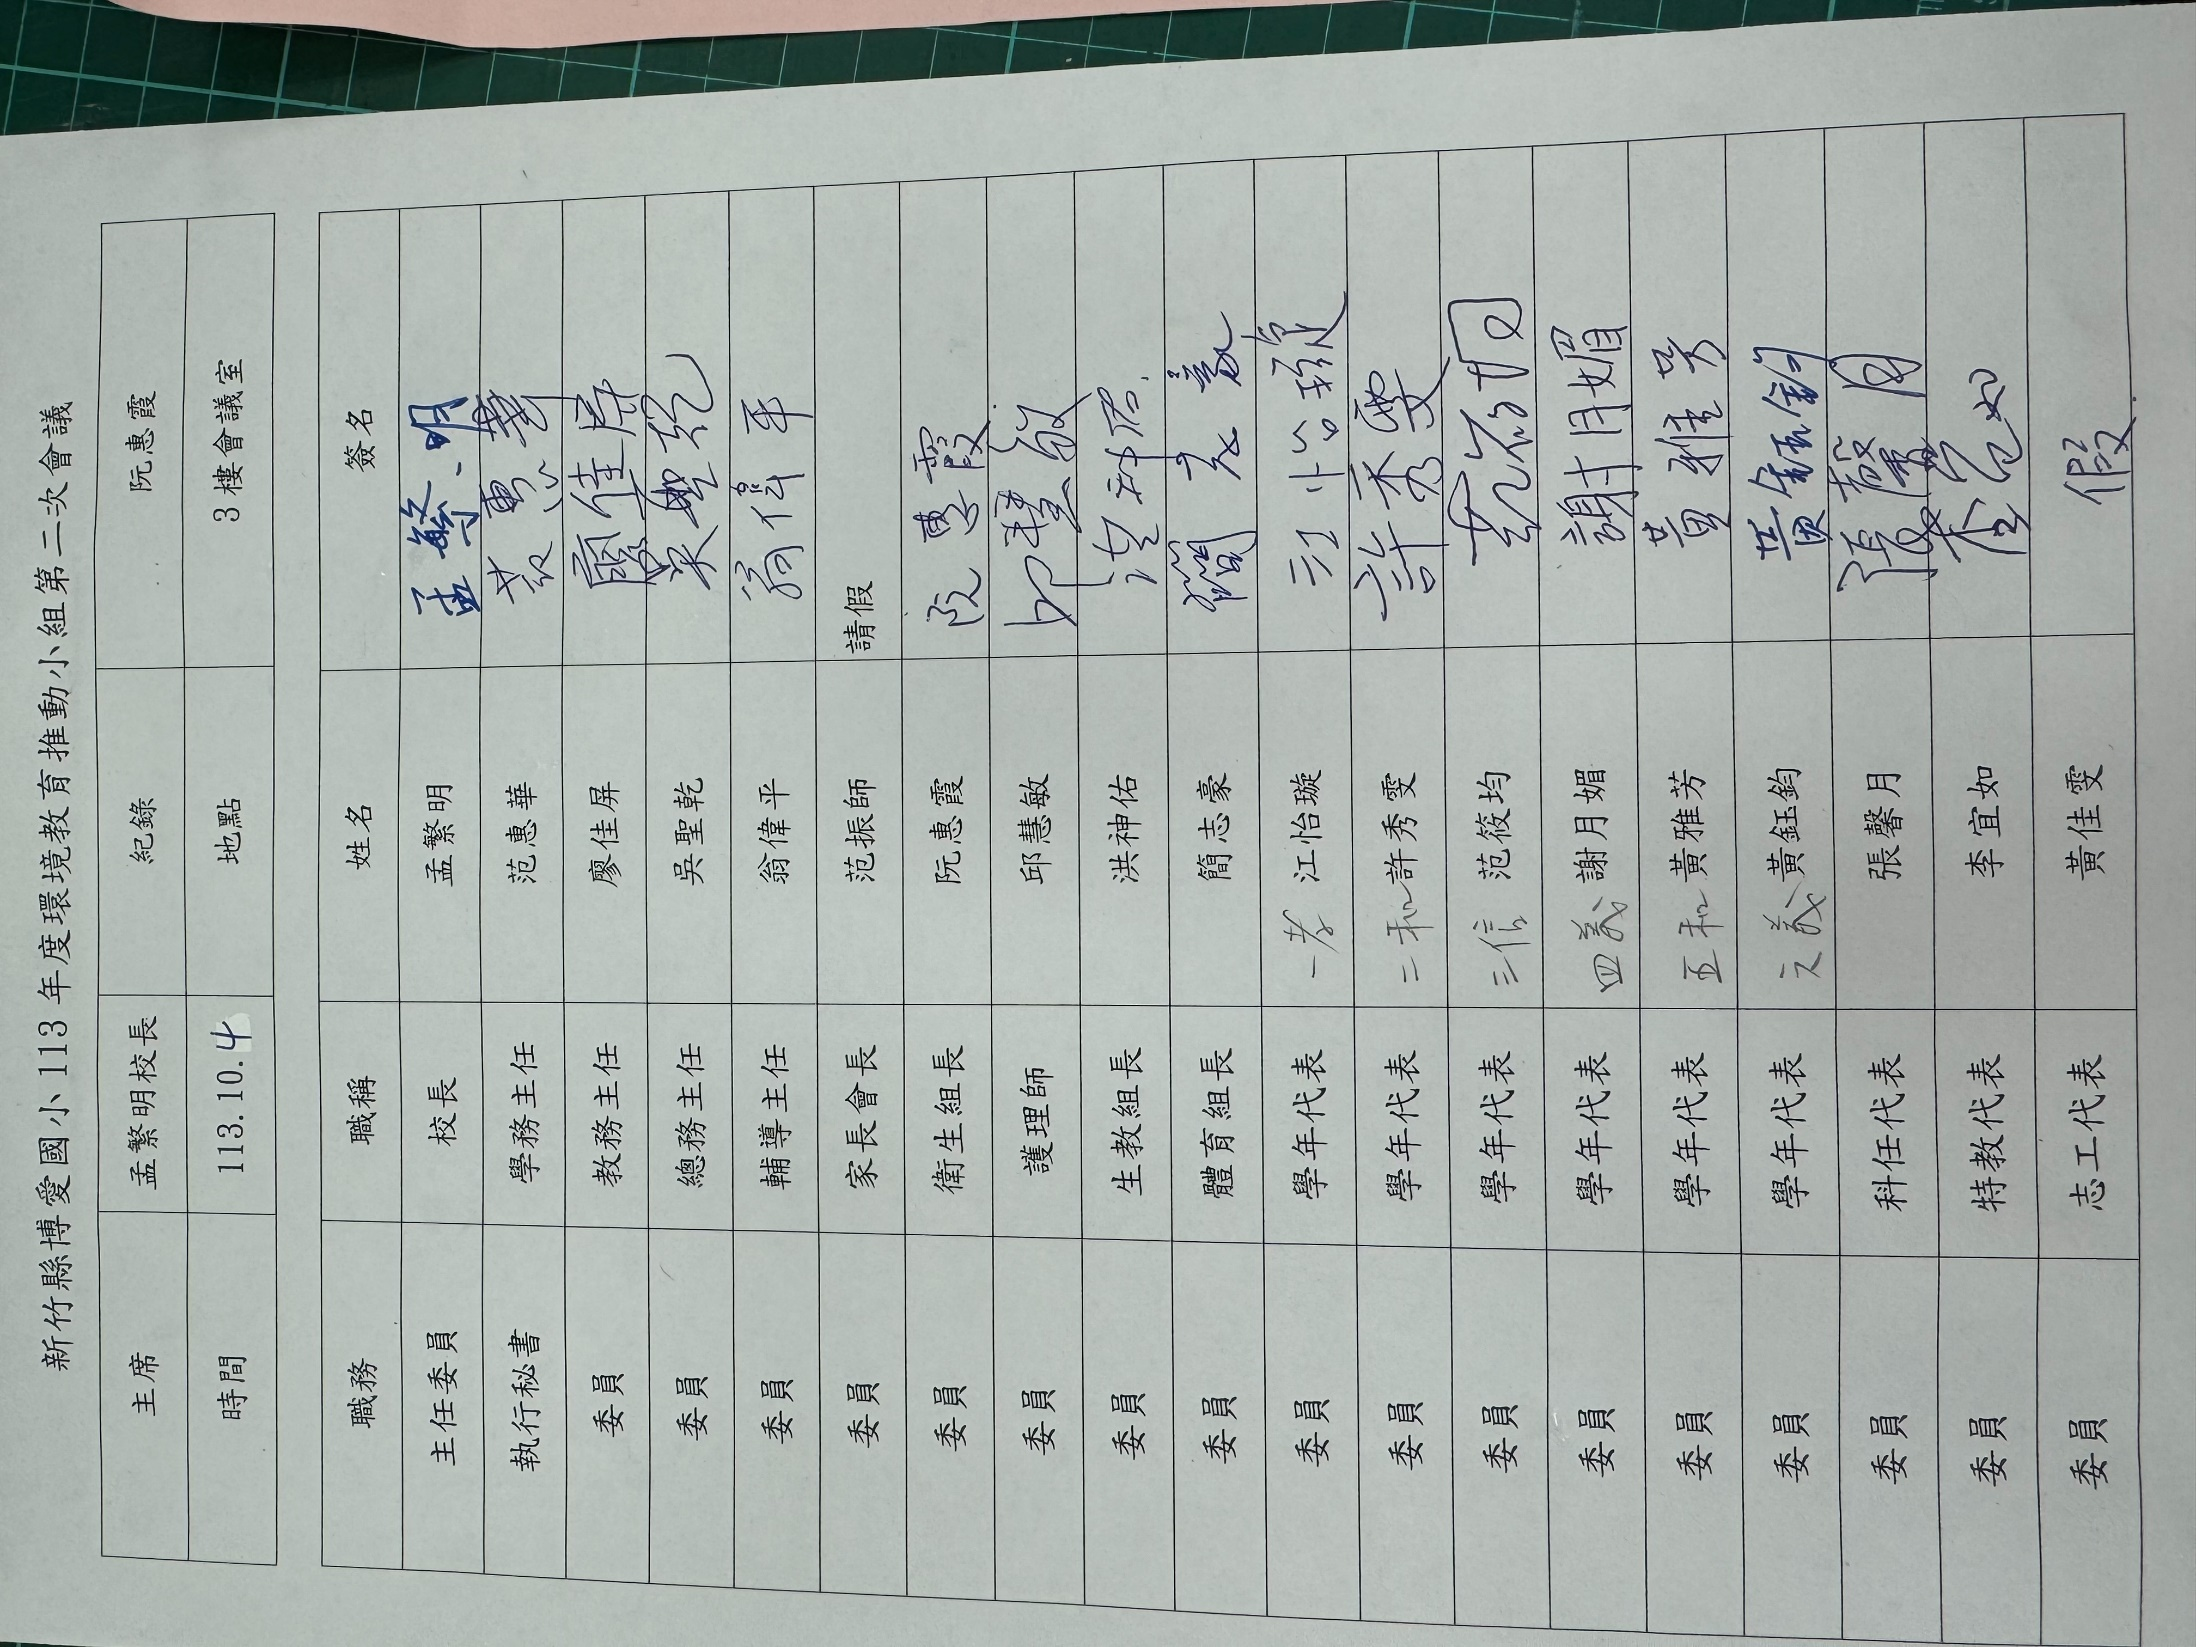 新竹縣博愛國小 113 年度環境教育推動小組第二次會議
主席 孟繁明校長 紀錄 阮惠霞
時間 113.10.4 地點 3 樓會議室
職務 職稱 姓名 簽名
主任委員 校長 孟繁明 孟繁明
執行秘書 學務主任 范惠華 范惠華
委員 教務主任 廖佳屏 廖佳屏
委員 總務主任 吳聖乾 吳聖乾
委員 輔導主任 翁偉平 翁偉平
委員 家長會長 范振師 請假
委員 衛生組長 阮惠霞 阮惠霞
委員 護理師 邱慧敏 邱慧敏
委員 生教組長 洪神佑 洪神佑
委員 體育組長 簡志豪 簡志豪
委員 學年代表 一孝 江怡璇 江怡璇
委員 學年代表 二和 許秀雯 許秀雯
委員 學年代表 三信 范筱均 范筱均
委員 學年代表 四義 謝月媚 謝月媚
委員 學年代表 五和 黃雅芳 黃雅芳
委員 學年代表 六義 黃鈺鈞 黃鈺鈞
委員 科任代表 張馨月 張馨月
委員 特教代表 李宜如 李宜如
委員 志工代表 黃佳雯 假